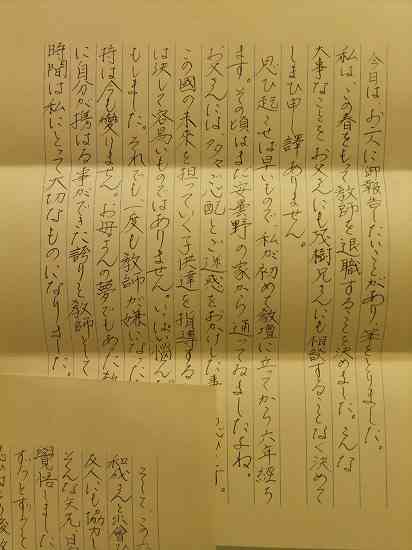 今日はお二人に御報告したいことがあり筆をとりました。
私は、この春をもって教師を退職することを決めました。こんな
大事なことを、お父さんにも茂樹兄さんにも相談することなく決めて
しまひ申し訳ありません。
思ひ起こせば早いもので、私が初めて教壇に立ってから六年経ち
ます。その頃はまだ安曇野の家から通ってゐましたよね。
お父さんには多々ご心配とご迷惑をおかけした事
この國の未來を担っていく子供達を指導する
は決して容易いものではありません。いっぱい悩ん
もしました。それでも一度も教師が嫌いになった
持は今も変りません。お母さんの夢でもあった教
に自分が携はる事ができた誇りと教師として
時間は私にとって大切なものになりました。
そして、この
和成さんと出會
友人にも協力し
そんな矢先、日
覺悟しました
ずっとずっと